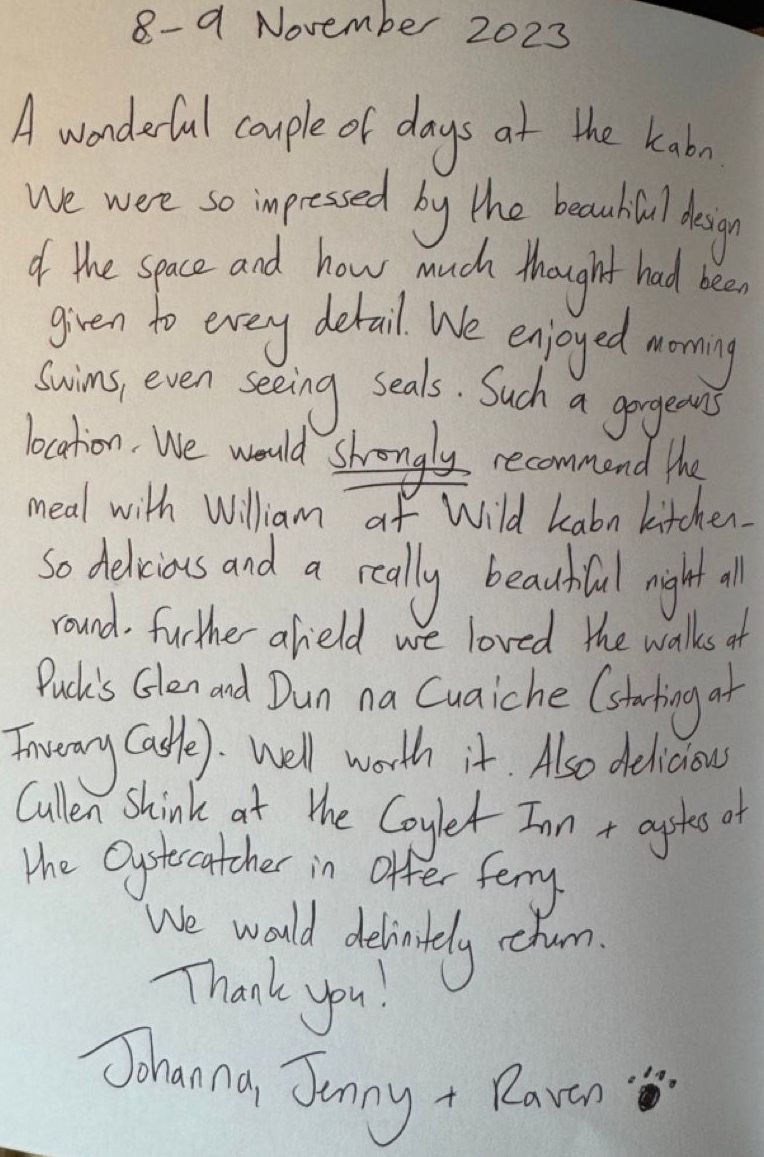 8-9 November 2023
A wonderful couple of days at the kabn.
We were so impressed by the beautiful design
of the space and how much thought had been
given to every detail. We enjoyed morning
swims, even seeing seals. Such a gorgeous
location. We would strongly recommend the
meal with William at Wild kabn kitchen-
so delicious and a really beautiful night all
round. Further afield we loved the walks at
Puck's Glen and Dun na Cuaiche (starting at
Inverary Castle). Well worth it. Also delicious
Cullen Skink at the Coylet Inn + oysters at
the Oystercatcher in Otter Ferry.
We would definitely return.
Thank you!
Johanna, Jenny + Raven